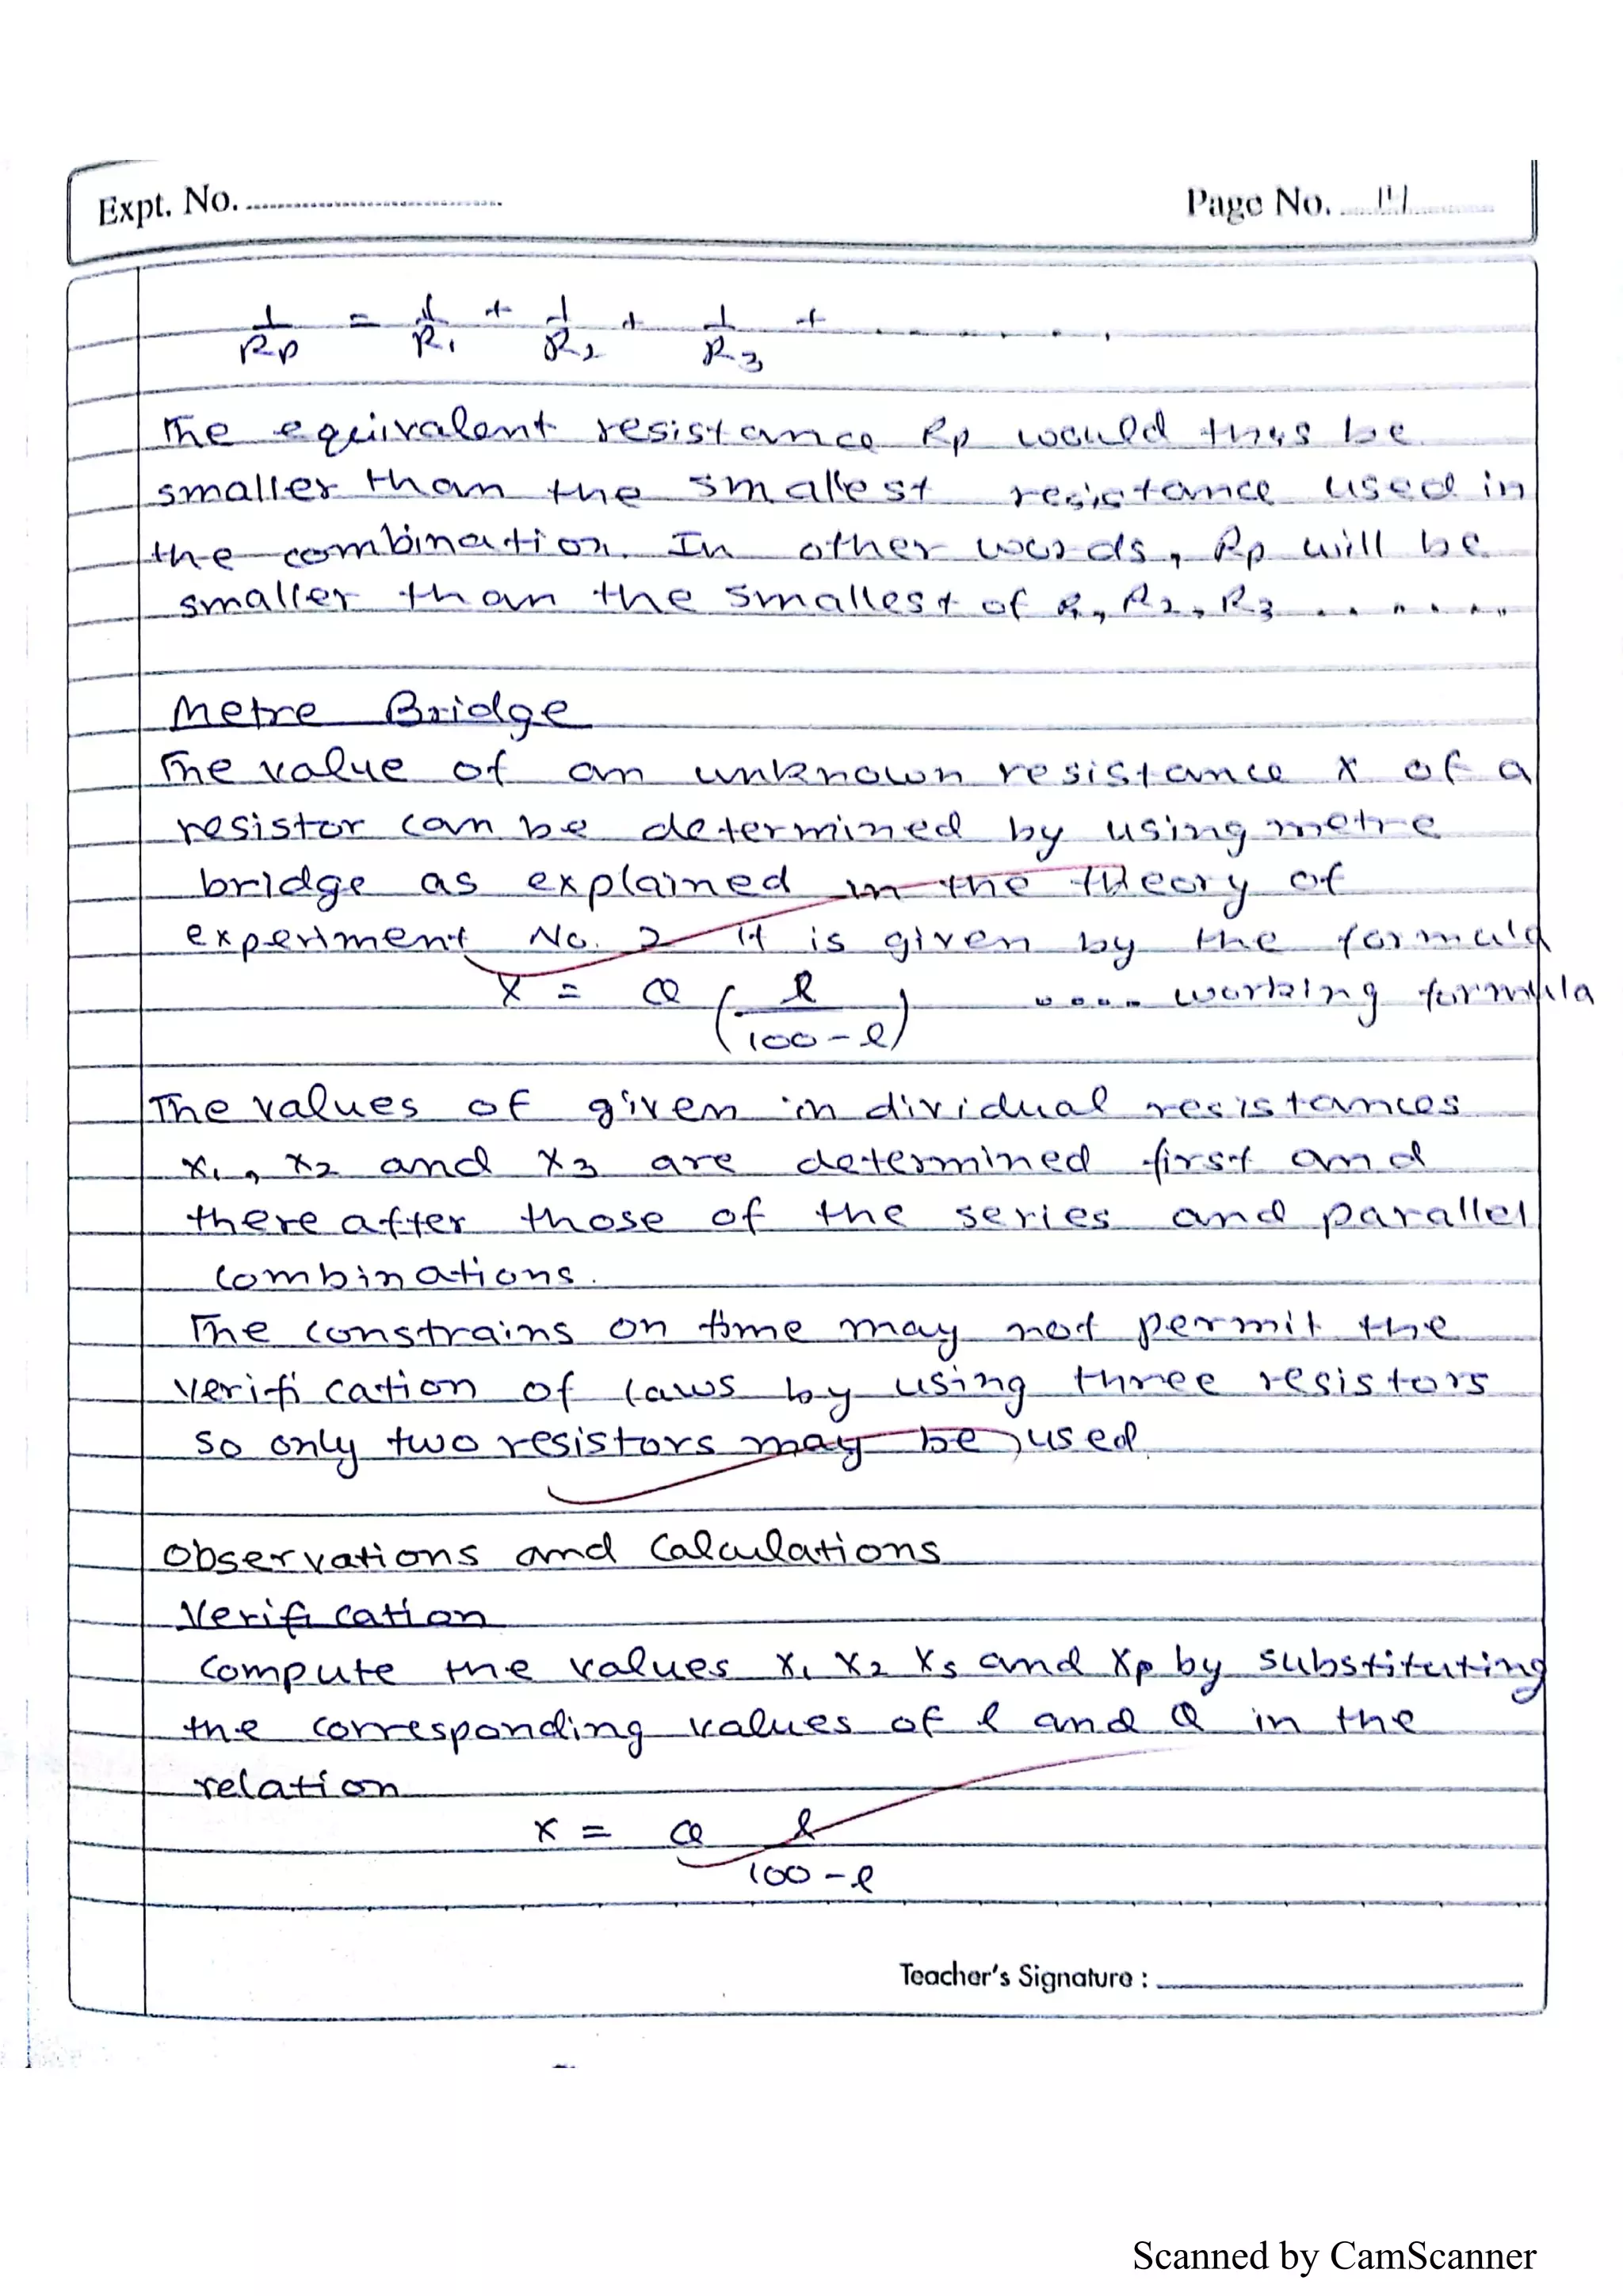 Expt. No. Page No. 14
1/Rp = 1/R1 + 1/R2 + 1/R3 + ........
The equivalent resistance Rp would thus be
smaller than the smallest resistance used in
the combination. In other words, Rp will be
smaller than the smallest of R1, R2, R3 ......
Metre Bridge
The value of an unknown resistance X of a
resistor can be determined by using metre
bridge as explained in the theory of
experiment No. 2 it is given by the formula
X = Q (l/(100-l)) .... working formula
The values of given individual resistances
X1, X2 and X3 are determined first and
there after those of the series and parallel
combinations.
The constrains on time may not permit the
verification of laws by using three resistors
so only two resistors may be used
Observations and Calculations
Verification
Compute the values X1 X2 Xs and Xp by substituting
the corresponding values of l and Q in the
relation
X = Q l/(100-l)
Teacher's Signature :
Scanned by CamScanner